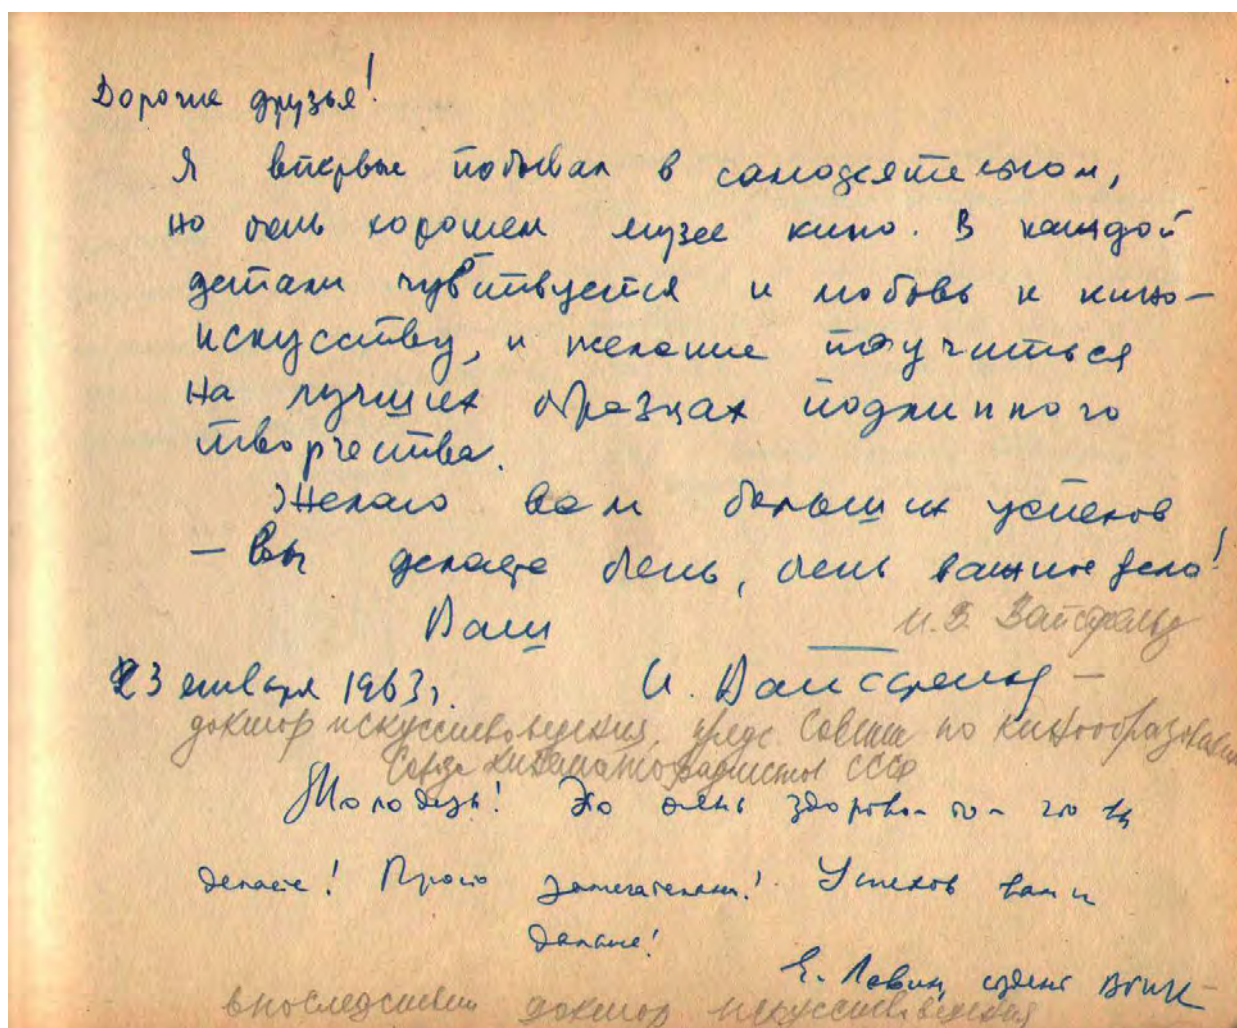 Дорогие друзья!
Я впервые побывал в самодеятельном,
но очень хорошем музее кино. В каждой
детали чувствуется и любовь к кино-
искусству, и желание поучиться
на лучших образцах подлинного
творчества.
Желаю вам больших успехов
– Вы делаете очень, очень важное дело!
Ваш
И.В. Вайсфельд
23 января 1963 г. И. Вайсфельд
доктор искусствоведения, предс. Совета по кинообразованию
Союза кинематографистов СССР
Молодежь! Это очень здорово – то – что вы
делаете! Просто замечательно! Успехов вам и
дальше!
Е. Левин, студент ВГИК
впоследствии доктор искусствоведения